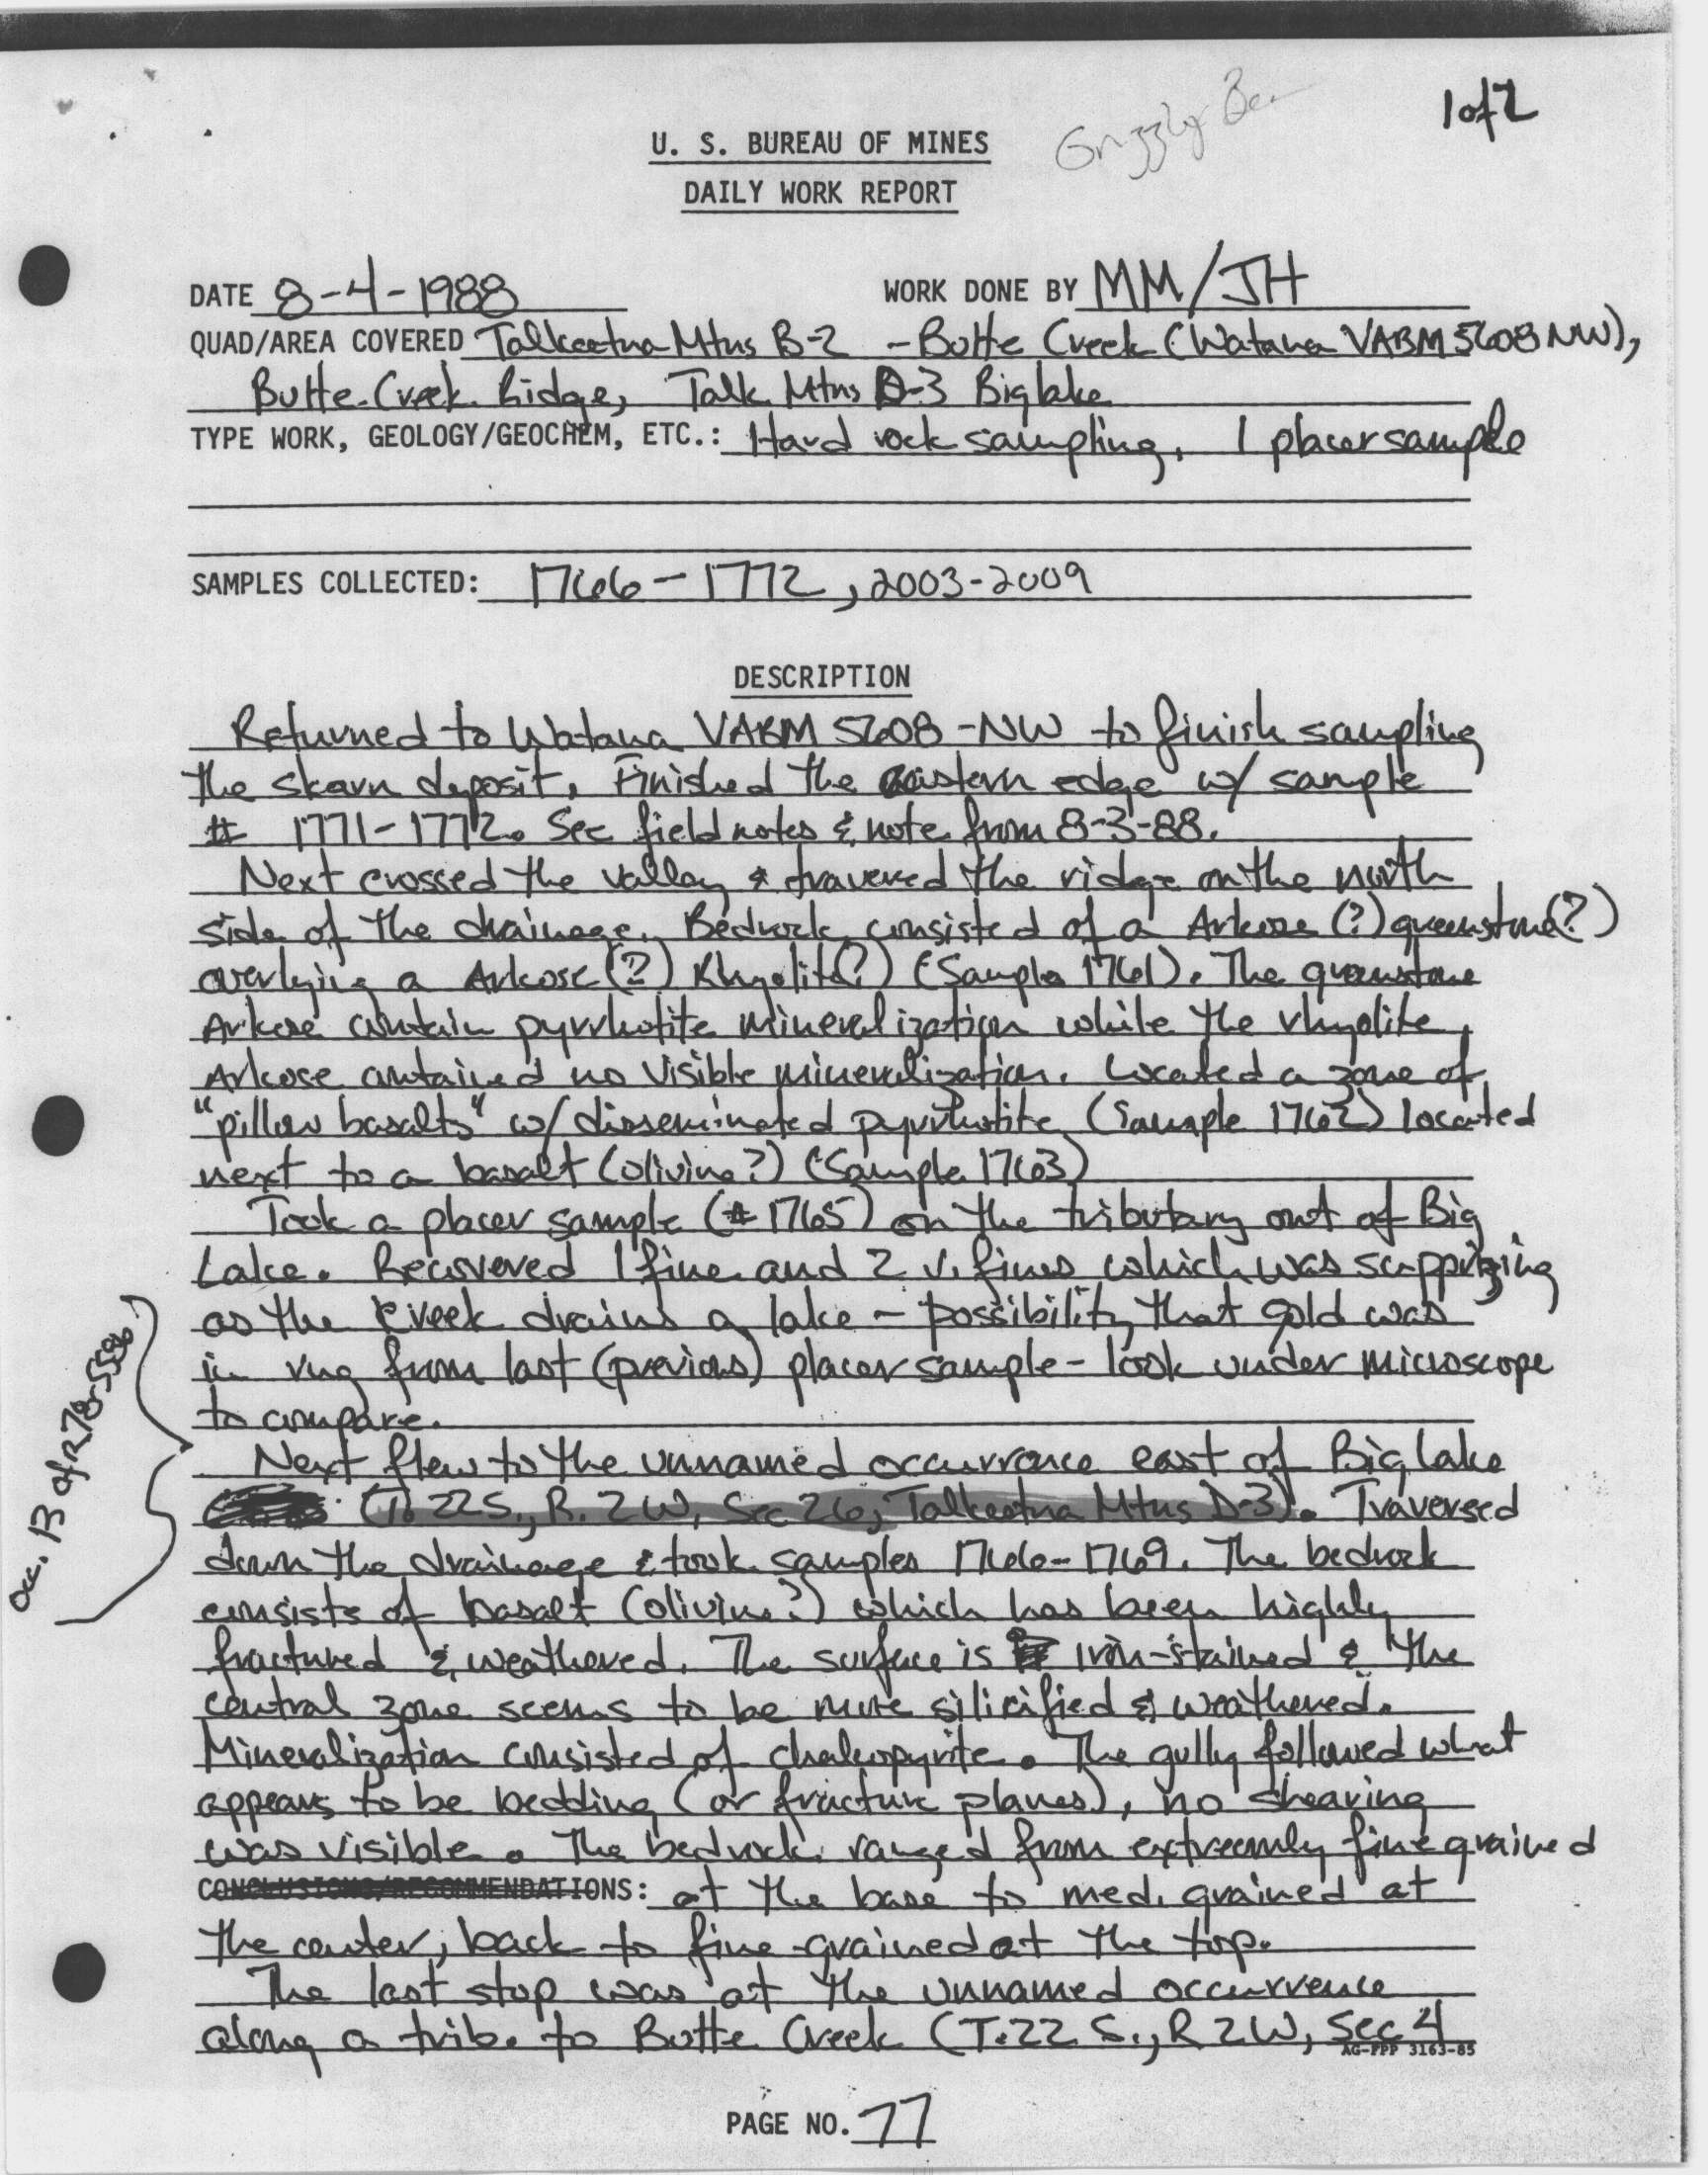 1 of 2
Grizzly
U. S. BUREAU OF MINES
DAILY WORK REPORT
DATE 8-4-1988 WORK DONE BY MM/JH
QUAD/AREA COVERED Talkeetna Mtns B-2 - Butte Creek (Watana VABM 5608 NW),
Butte Creek Ridge, Talk Mtns D-3 Big lake
TYPE WORK, GEOLOGY/GEOCHEM, ETC.: Hard rock sampling, 1 placer sample
SAMPLES COLLECTED: 1766-1772, 2003-2009
DESCRIPTION
Returned to Watana VABM 5608-NW to finish sampling
the skarn deposit. Finished the eastern edge w/ sample
# 1771-1772. See field notes & note from 8-3-88.
Next crossed the valley & travered the ridge on the north
side of the drainage. Bedrock consisted of a Arkose (?) greenstone(?)
overlying a Arkose (?) Rhyolite(?) (Sample 1761). The greenstone
Arkose contain pyrrhotite mineralization while the rhyolite,
Arkose contained no visible mineralization. Located a zone of
"pillow basalts" w/ disseminated pyrrhotite (Sample 1762) located
next to a basalt (olivine?) (Sample 1763)
Took a placer sample (# 1765) on the tributary out of Big
Lake. Recovered 1 fine and 2 v. fines which was supprizing
as the creek drains a lake - possibility that gold was
in rug from last (previous) placer sample - look under microscope
to compare.
Next flew to the unnamed occurrence east of Big lake
(T. 22S., R. 2W, Sec 26, Talkeetna Mtns D-3). Traversed
down the drainage & took samples 1766-1769. The bedrock
consists of basalt (olivine?) which has been highly
fractured & weathered. The surface is iron-stained & the
central zone seems to be more silicified & weathered.
Mineralization consisted of chalcopyrite. The gully followed what
appears to be bedding (or fracture planes), no shearing
was visible. The bedrock ranged from extreemly fine grained
CONCLUSIONS/RECOMMENDATIONS: at the base to med. grained at
the center, back to fine-grained at the top.
The last stop was at the unnamed occurrence
along a trib. to Butte Creek (T.22 S., R 2W, Sec 4
AG-FPP 3163-85
PAGE NO. 77
Occ. 13 of R78-558B